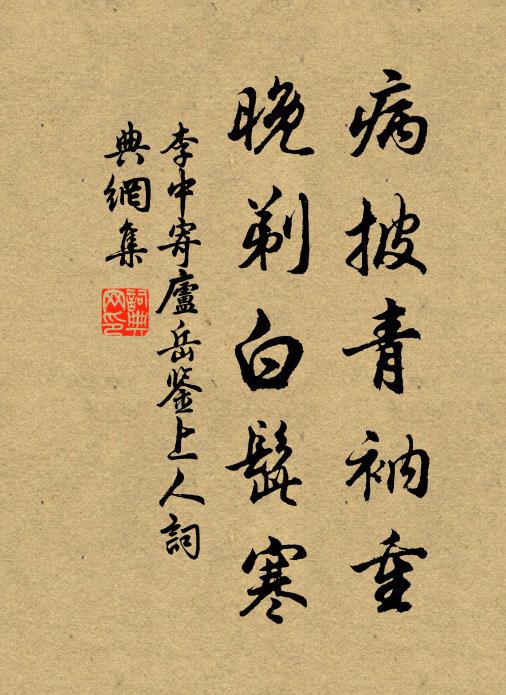 病披青衲重
晚剃白髭寒
李中寄廬岳鉴上人詞
典網集
詞典
网印